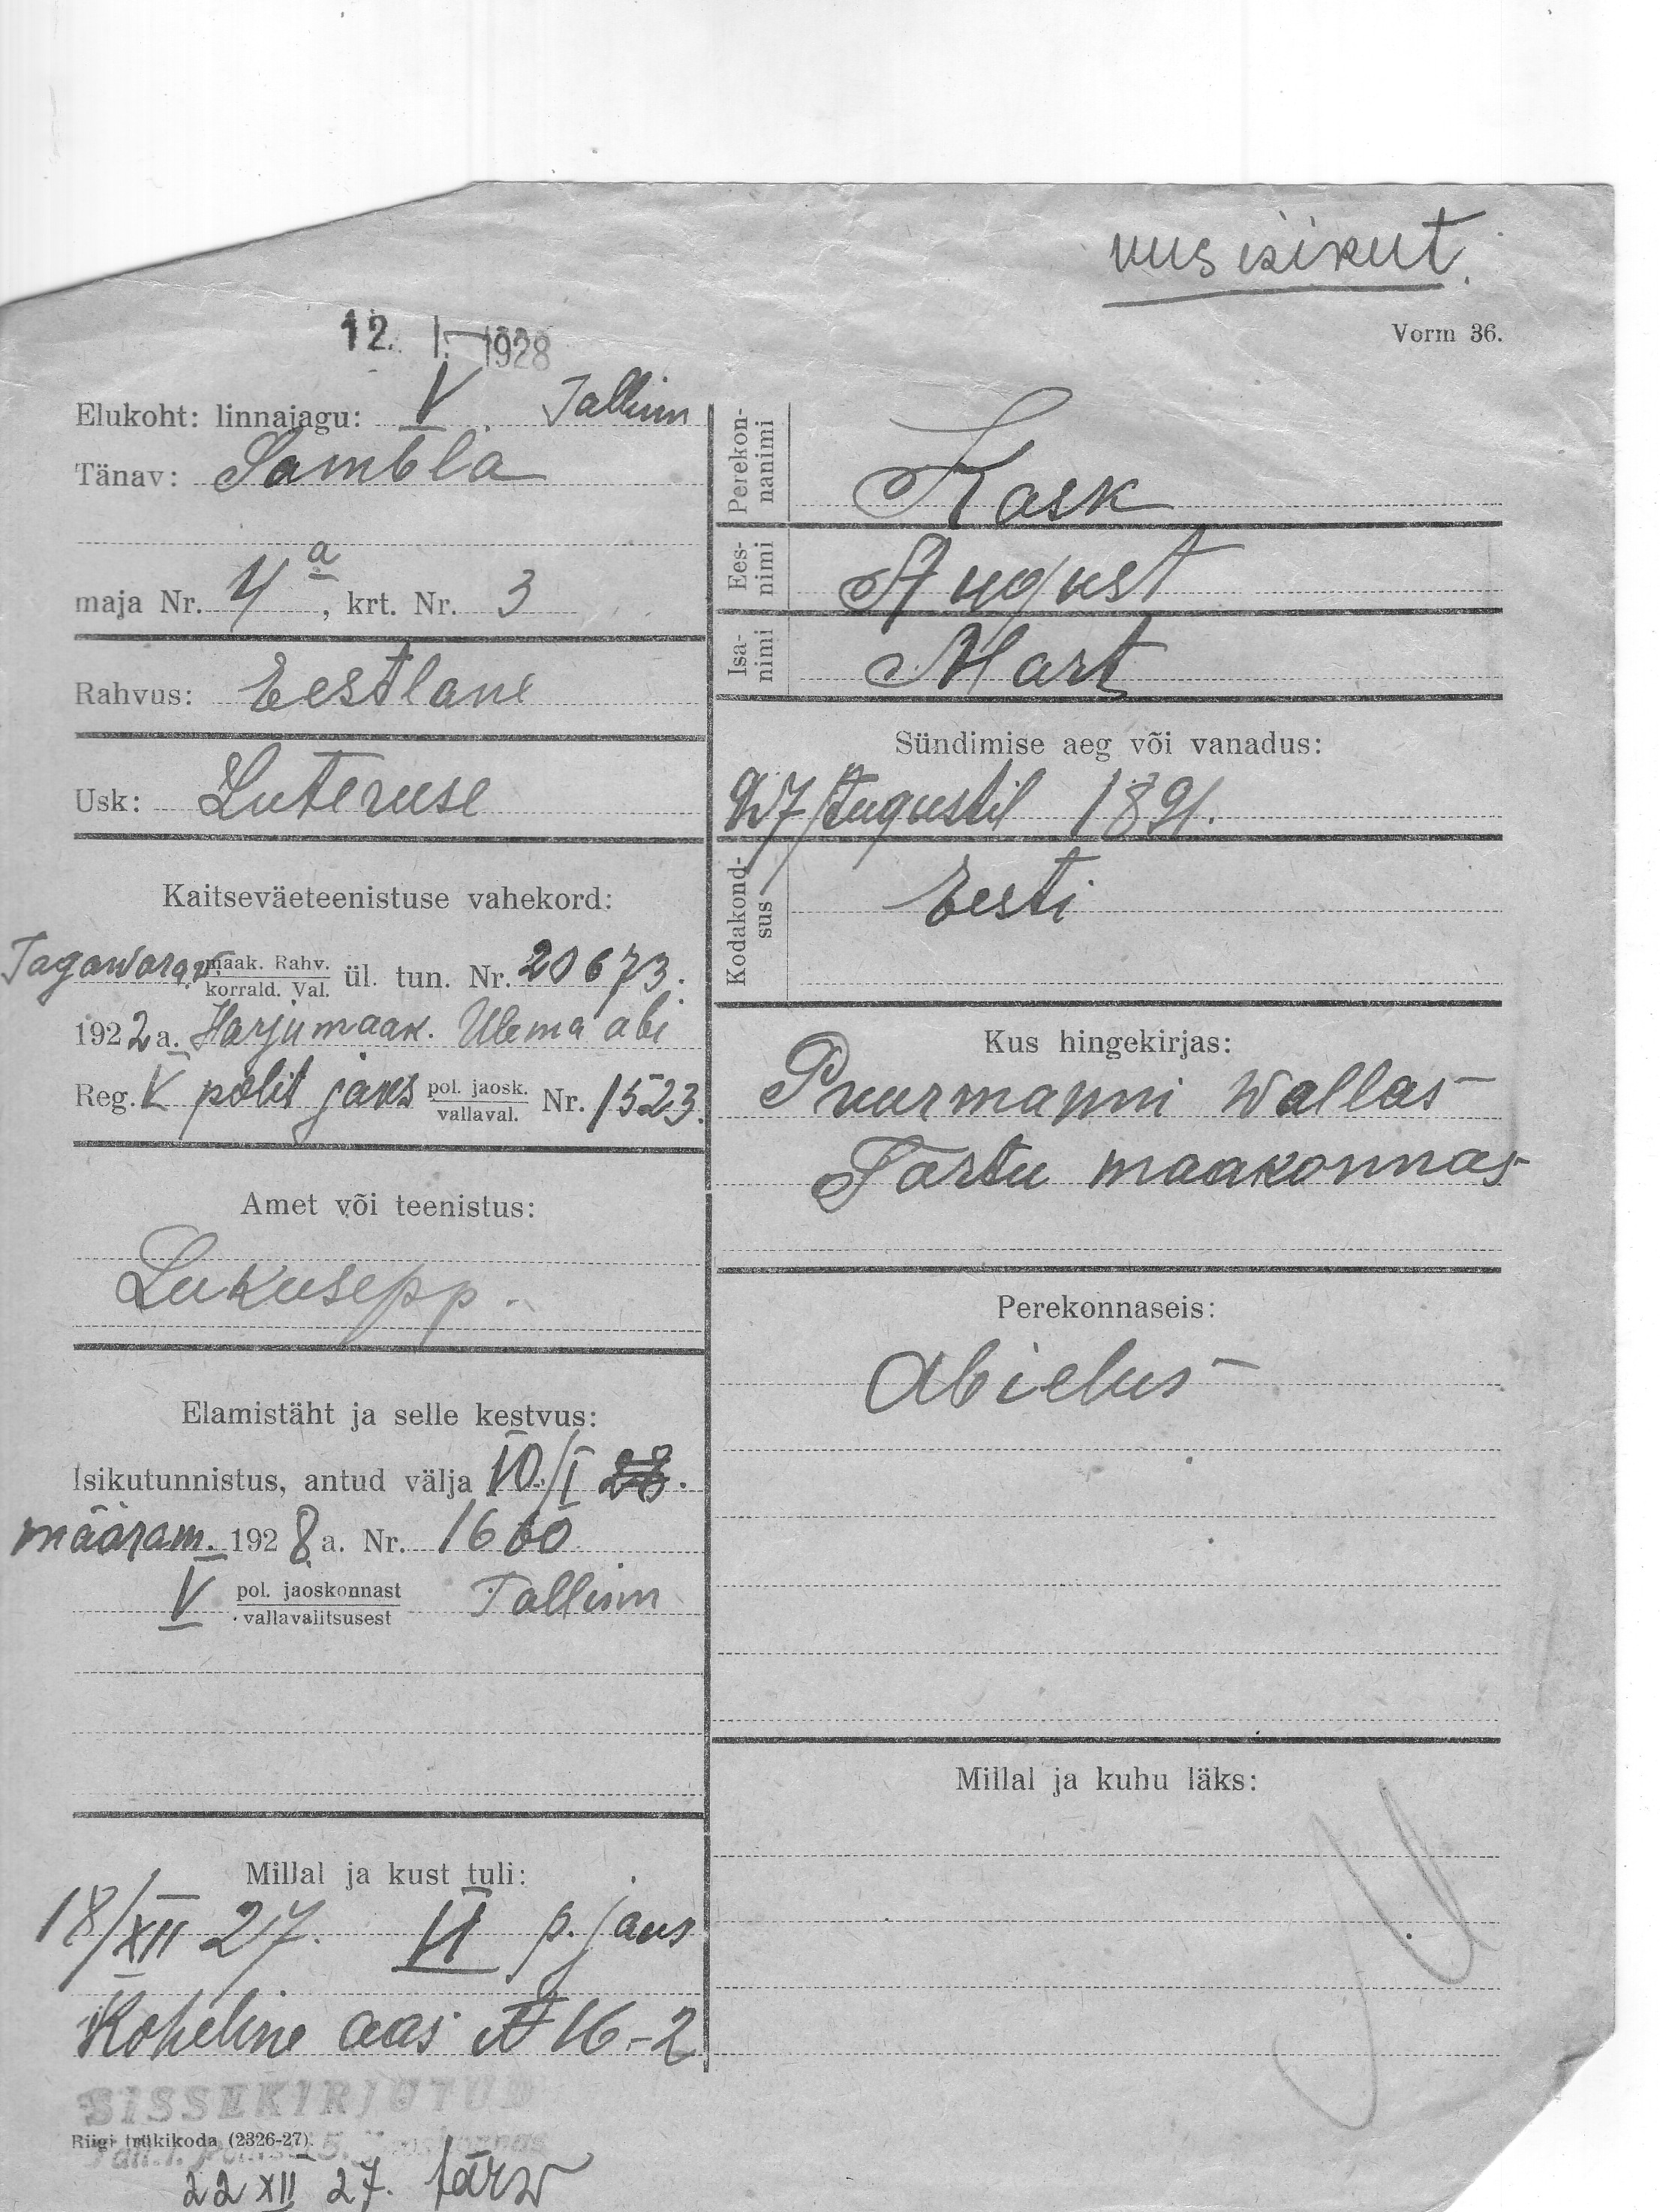 uus isikut.
Vorm 36.
12. I. 1928
Elukoht: linnajagu: V. Tallinn
Tänav: Sambla
maja Nr. 4a, krt. Nr. 3
Rahvus: Eestlane
Usk: Luteruse
Kaitseväeteenistuse vahekord:
Tagawarav. maak. Rahv. korrald. Val. ül. tun. Nr. 20673.
1922 a. Harju maak. Ülema abi
Reg. V polit jaos pol. jaosk. vallaval. Nr. 1523.
Amet või teenistus:
Lukusepp.
Elamistäht ja selle kestvus:
Isikutunnistus, antud välja 10./I 28.
määram. 1928 a. Nr. 1660
V pol. jaoskonnast vallavalitsusest Tallinn
Millal ja kust tuli:
18/XII 27. VI p. jaos
Koheline aas № 16-2
SISSEKIRJUTUD
Riigi trükikoda (2326-27).
22 XII 27.
Perekonnanimi
Kask
Eesnimi
August
Isanimi
Mart
Sündimise aeg või vanadus:
Augustil 1891.
Kodakondsus
Eesti
Kus hingekirjas:
Puurmanni Wallas
Tartu maakonnas
Perekonnaseis:
Abielus
Millal ja kuhu läks: